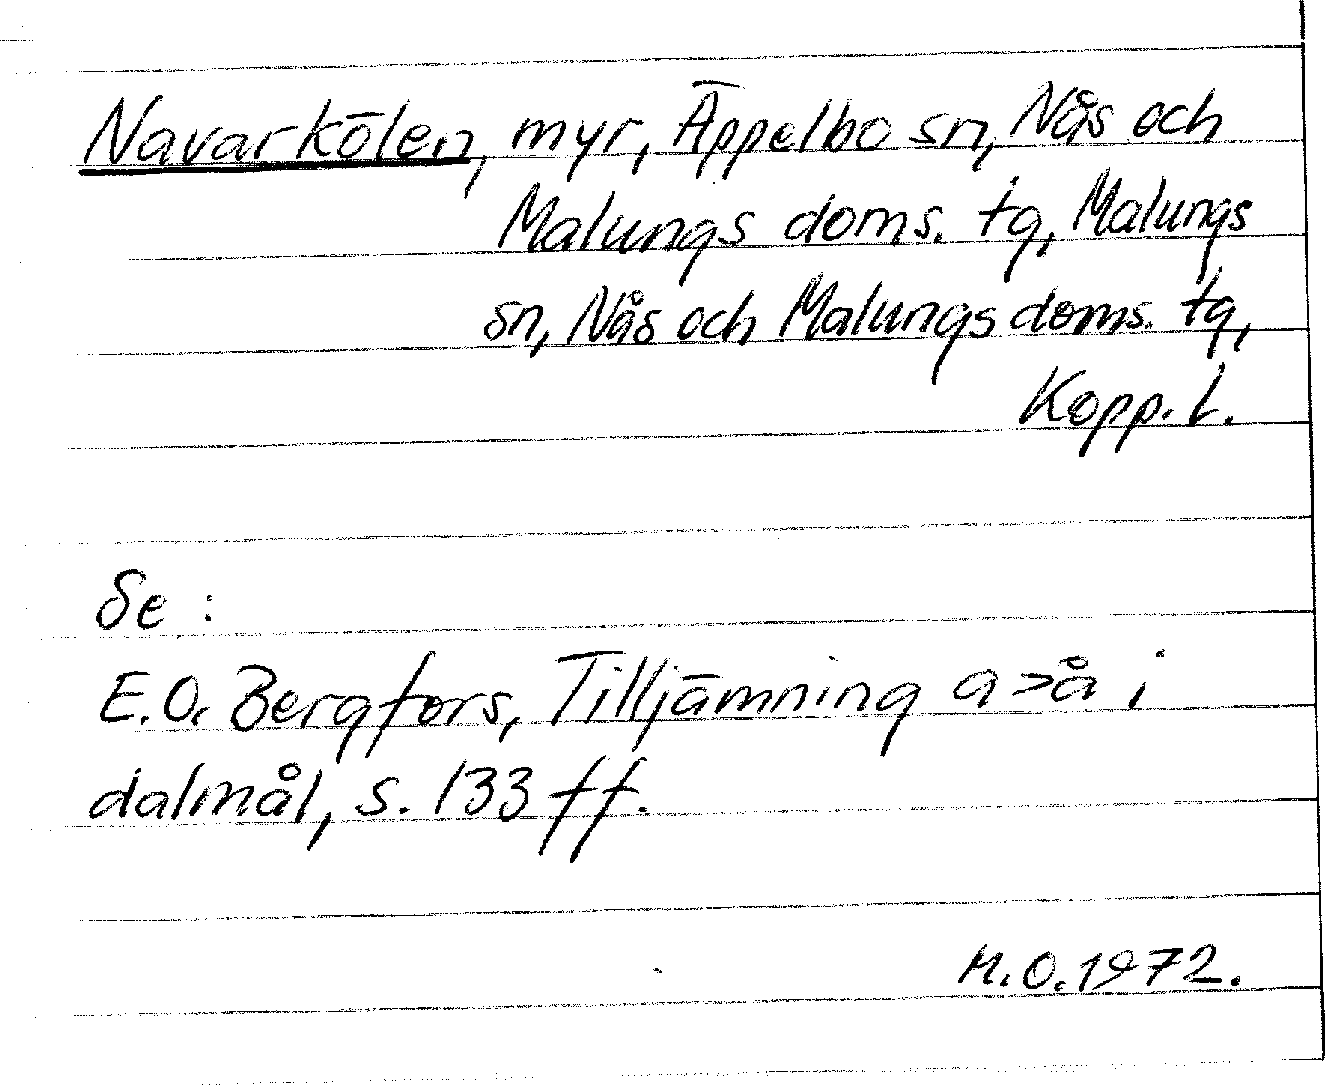 Navarkölen, myr, Äppelbo sn, Nås och
Malungs doms. tg, Malungs
sn, Nås och Malungs doms. tg,
Kopp. l.
Se :
E.O. Bergfors, Tilljämning a>å i
dalmål, s. 133 ff.
M.O. 1972.